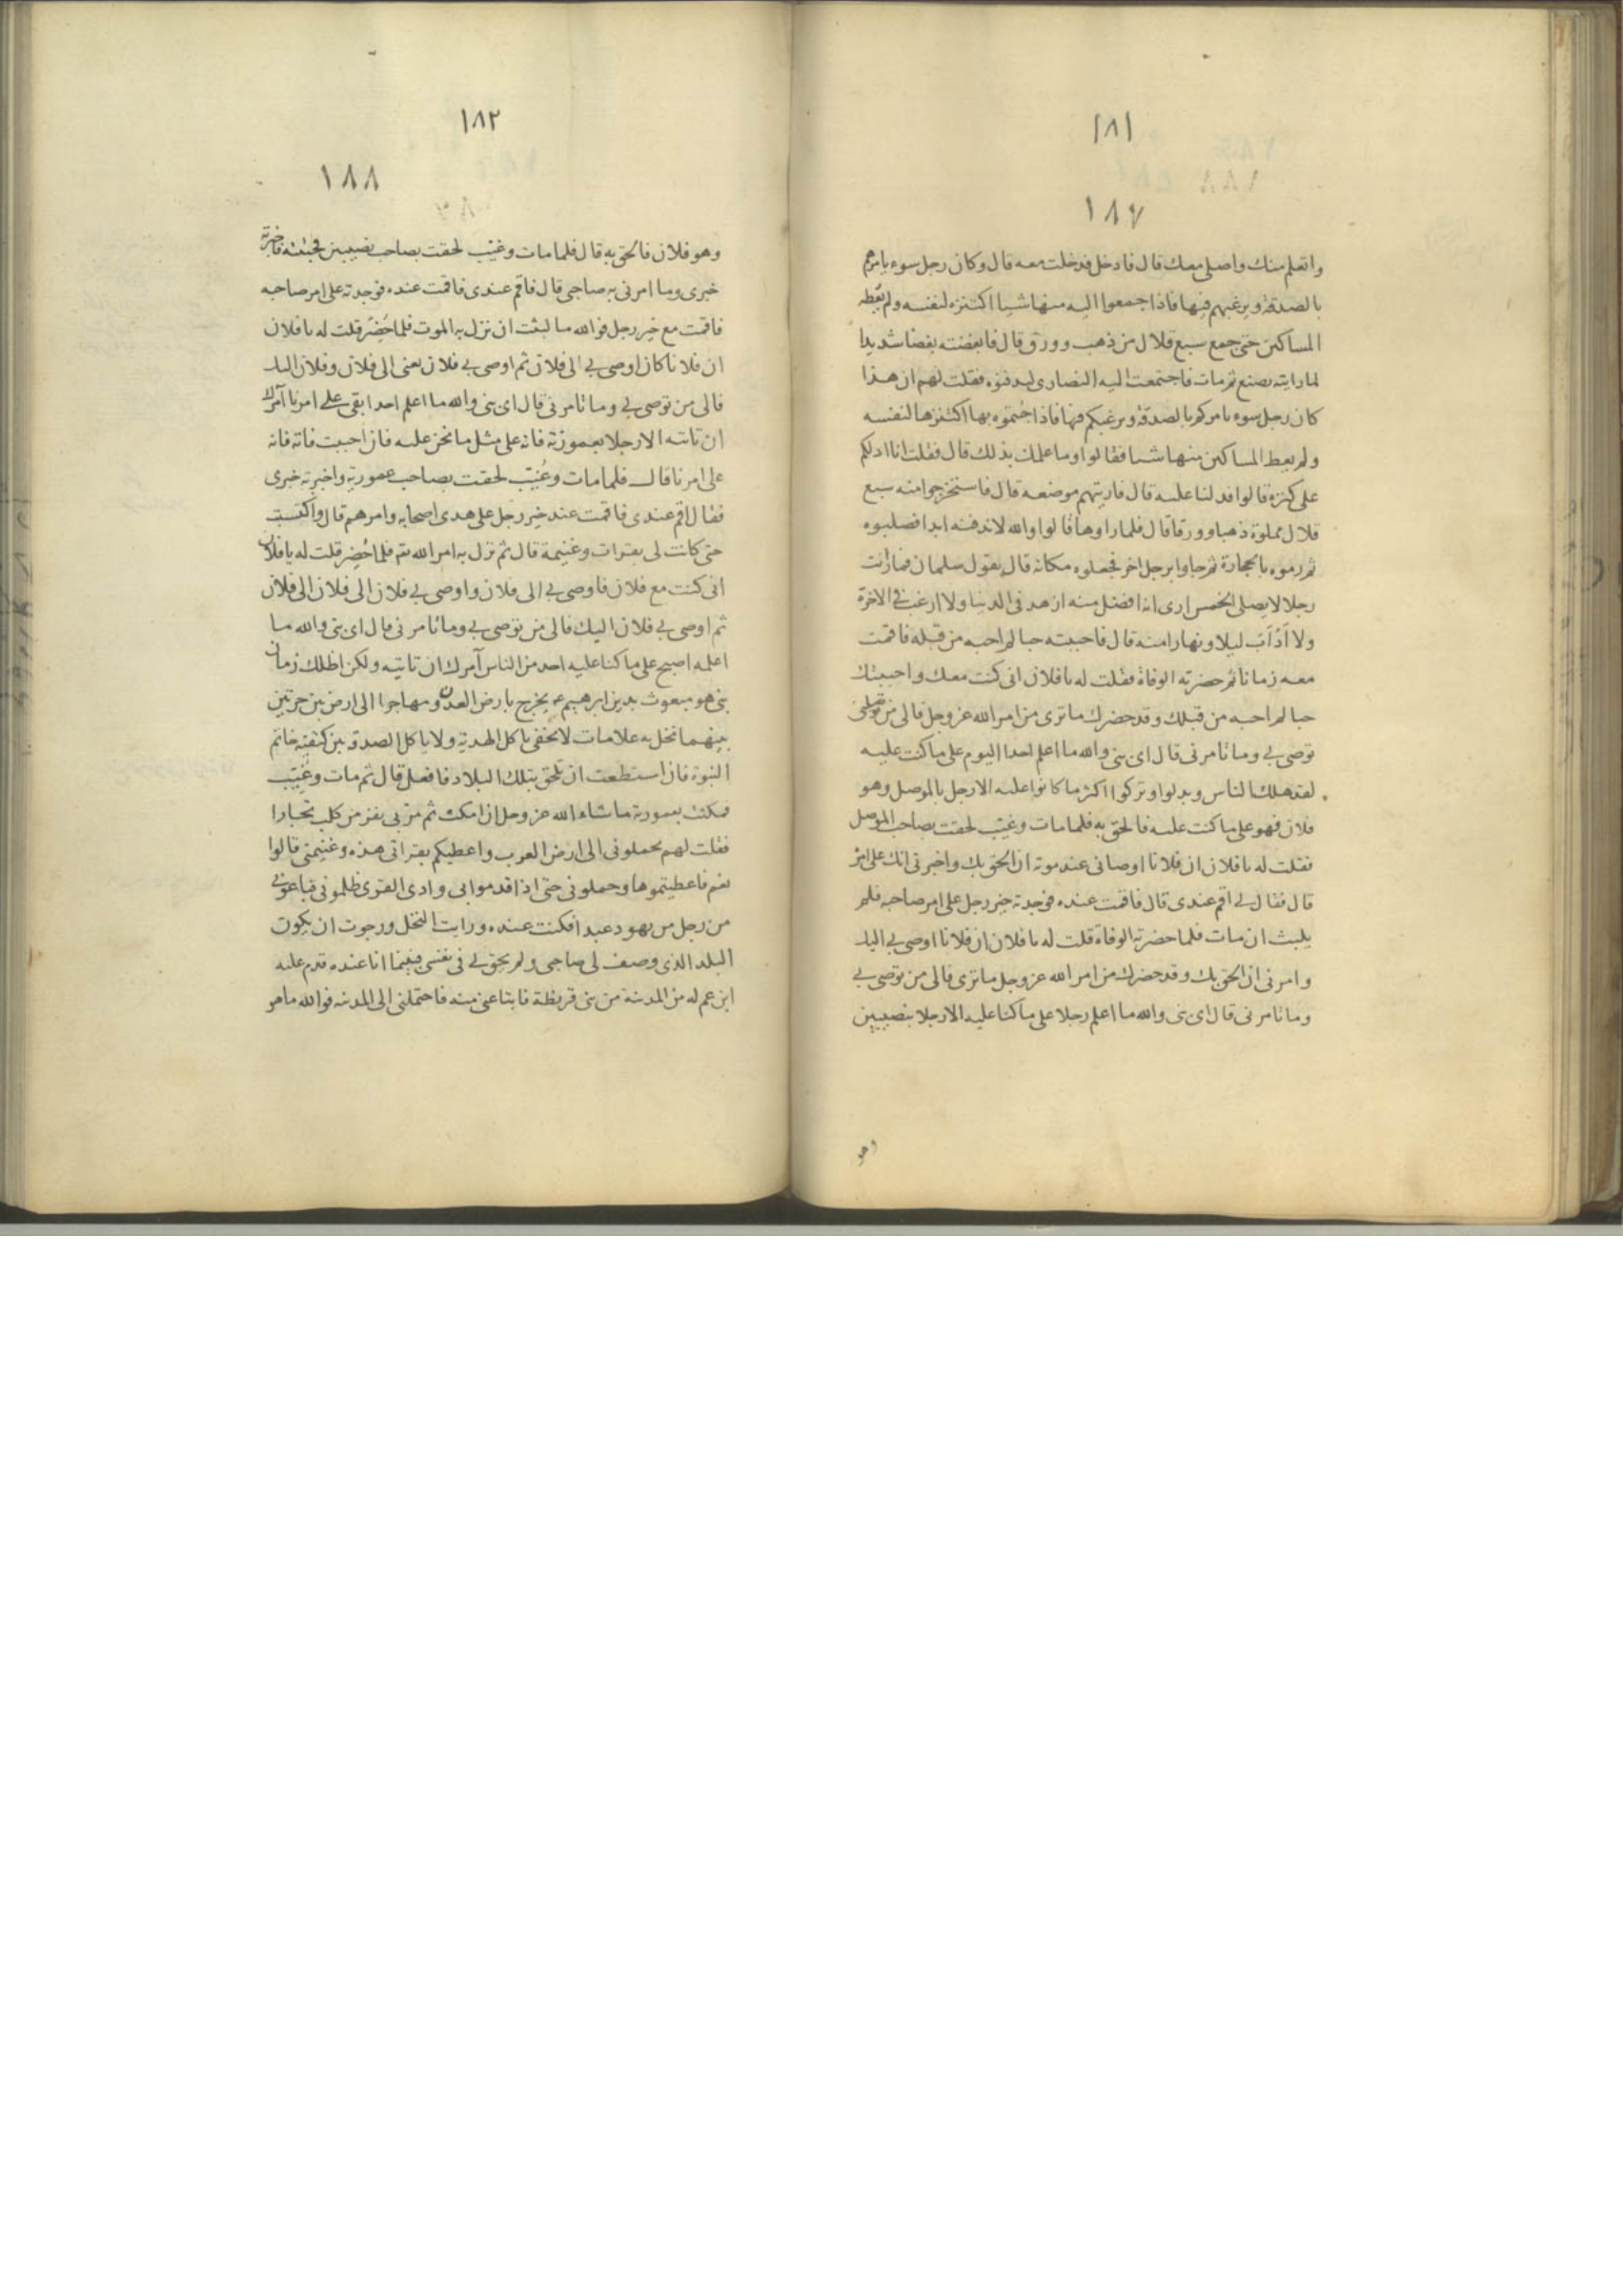 ١٨١
١٨٧
واتعلم منك واصلى معك قال فادخل فدخلت معه قال وكان رجل سوء يامرهم
بالصدقة ويرغبهم فيها فاذا جمعوا اليه منها شيا اكتنزه لنفسه ولم يعطه
المساكين حتى جمع سبع قلال من ذهب وورق قال فابغضته بغضا شديدا
لما رايته يصنع ثم مات فاجتمعت اليه النصارى ليدفنوه فقلت لهم ان هذا
كان رجل سوء يامركم بالصدقة ويرغبكم فيها فاذا جئتموه بها اكتنزها لنفسه
ولم يعط المساكين منها شيا فقالوا وما علمك بذلك قال فقلت انا ادلكم
على كنزه قالوا فدلنا عليه قال فاريتهم موضعه قال فاستخرجوا منه سبع
قلال مملوة ذهبا وورقا قال فلما راوها قالوا والله لا ندفنه ابدا فصلبوه
ثم رموه بالحجارة ثم جاوا برجل اخر فجعلوه مكانه قال يقول سلمان فما رايت
رجلا لا يصلى الخمس ارى انه افضل منه ازهد فى الدنيا ولا ارغب فى الاخرة
ولا ادأب ليلا ونهارا منه قال فاحببته حبا لم احبه من قبله فاقمت
معه زمانا ثم حضرته الوفاة فقلت له يا فلان انى كنت معك واحببتك
حبا لم احبه من قبلك وقد حضرك ما ترى من امر الله عز وجل فالى من
توصى بى وما تامرنى قال اى بنى والله ما اعلم احدا اليوم على ما كنت عليه
لقد هلك الناس وبدلوا وتركوا اكثر ما كانوا عليه الا رجل بالموصل وهو
فلان فهو على ما كنت عليه فالحق به فلما مات وغيب لحقت بصاحب الموصل
فقلت له يا فلان ان فلانا اوصانى عند موته ان الحق بك واخبرنى انك على امره
قال فقال لى اقم عندى قال فاقمت عنده فوجدته خير رجل على امر صاحبه فلم
يلبث ان مات فلما حضرته الوفاة قلت له يا فلان ان فلانا اوصى بى اليك
وامرنى ان الحق بك وقد حضرك من امر الله عز وجل ما ترى فالى من توصى بى
وما تامرنى قال اى بنى والله ما اعلم رجلا على ما كنا عليه الا رجلا بنصيبين
وهو
١٨٢
١٨٨
وهو فلان فالحق به قال فلما مات وغيب لحقت بصاحب نصيبين فجئته فاخبرته
خبرى وما امرنى به صاحبى قال فاقم عندى فاقمت عنده فوجدته على امر صاحبه
فاقمت مع خير رجل فوالله ما لبثت ان نزل به الموت فلما حُضِر قلت له يا فلان
ان فلانا كان اوصى بى الى فلان ثم اوصى بى فلان يعنى الى فلان وفلان اليك
فالى من توصى بى وما تامرنى قال اى بنى والله ما اعلم احدا بقى على امرنا آمرك
ان تاتيه الا رجلا بعمورية فانه على مثل ما نحن عليه فان احببت فاته فانه
على امرنا قال فلما مات وغُيّب لحقت بصاحب عمورية واخبرته خبرى
فقال اقم عندى فاقمت عند خير رجل على هدى اصحابه وامرهم قال واكتسبت
حتى كانت لى بقرات وغنيمة قال ثم نزل به امر الله تعه فلما حُضِر قلت له يا فلان
انى كنت مع فلان فاوصى بى الى فلان واوصى بى فلان الى فلان الى فلان
ثم اوصى بى فلان اليك فالى من توصى بى وما تامرنى قال اى بنى والله ما
اعلمه اصبح على ما كنا عليه احد من الناس آمرك ان تاتيه ولكن اظلك زمان
بنى هو مبعوث بدين ابرهيم عم يخرج بارض العدن ومهاجرا الى ارض بين حرتين
بينهما نخل به علامات لا تخفى ياكل الهدية ولا ياكل الصدقة بين كتفيه خاتم
النبوة فان استطعت ان تلحق بتلك البلاد فافعل قال ثم مات وغُيّب
فمكثت بعمورية ما شاء الله عز وجل ان امكث ثم مر بى نفر من كلب تجارا
فقلت لهم تحملونى الى ارض العرب واعطيكم بقراتى هذه وغنيمتى قالوا
نعم فاعطيتموها وحملونى حتى اذا قدموا بى وادى القرى ظلمونى فباعونى
من رجل من يهود عبدا فكنت عنده ورايت النخل ورجوت ان يكون
البلد الذى وصف لى صاحبى ولم يحق لى فى نفسى فبينما انا عنده قدم عليه
ابن عم له من المدينة من بنى قريظة فابتاعنى منه فاحتملنى الى المدينة فوالله ما هو